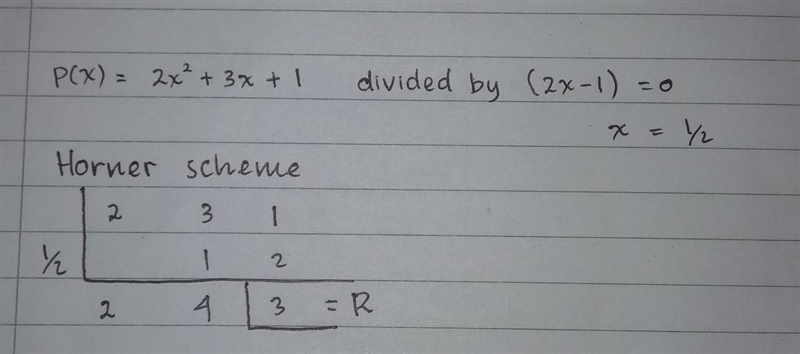 P(x) = 2x² + 3x + 1 divided by (2x-1) = 0
x = 1/2
Horner scheme
2 3 1
1/2 1 2
2 4 3 = R